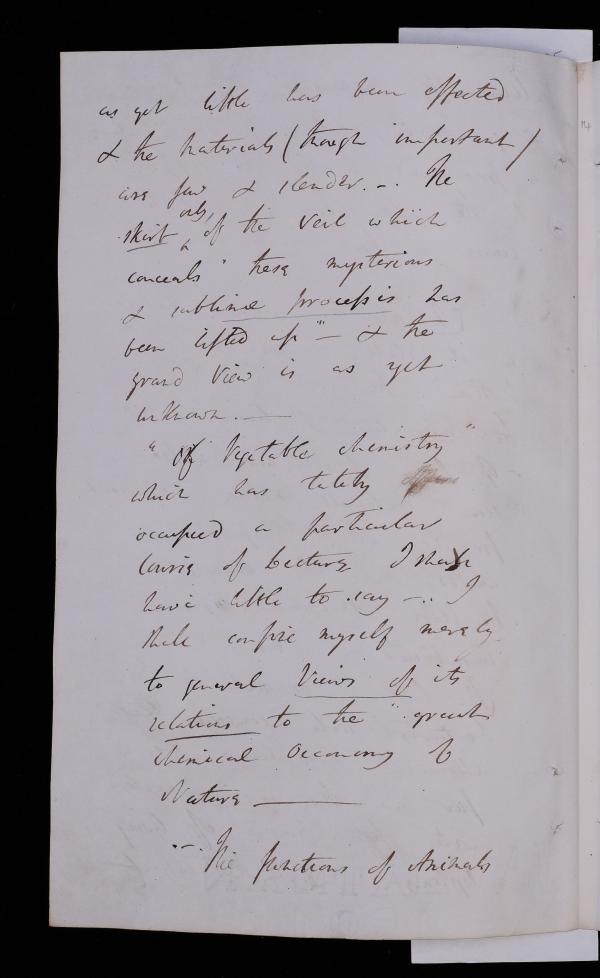 as yet little has been effected
& the materials (though important)
are few & slender. -. The
only
skirt ^ of the veil which
conceals "these mysterious
& sublime processes has
been lifted up" - & the
grand view is as yet
unknown. —
"Of Vegetable chemistry"
which has lately
occupied a particular
course of Lectures I shall
have little to say -. I
shall confine myself merely
to general Views of its
relations to the "great
chemical Oeconomy of
Nature —
.-. The functions of Animals